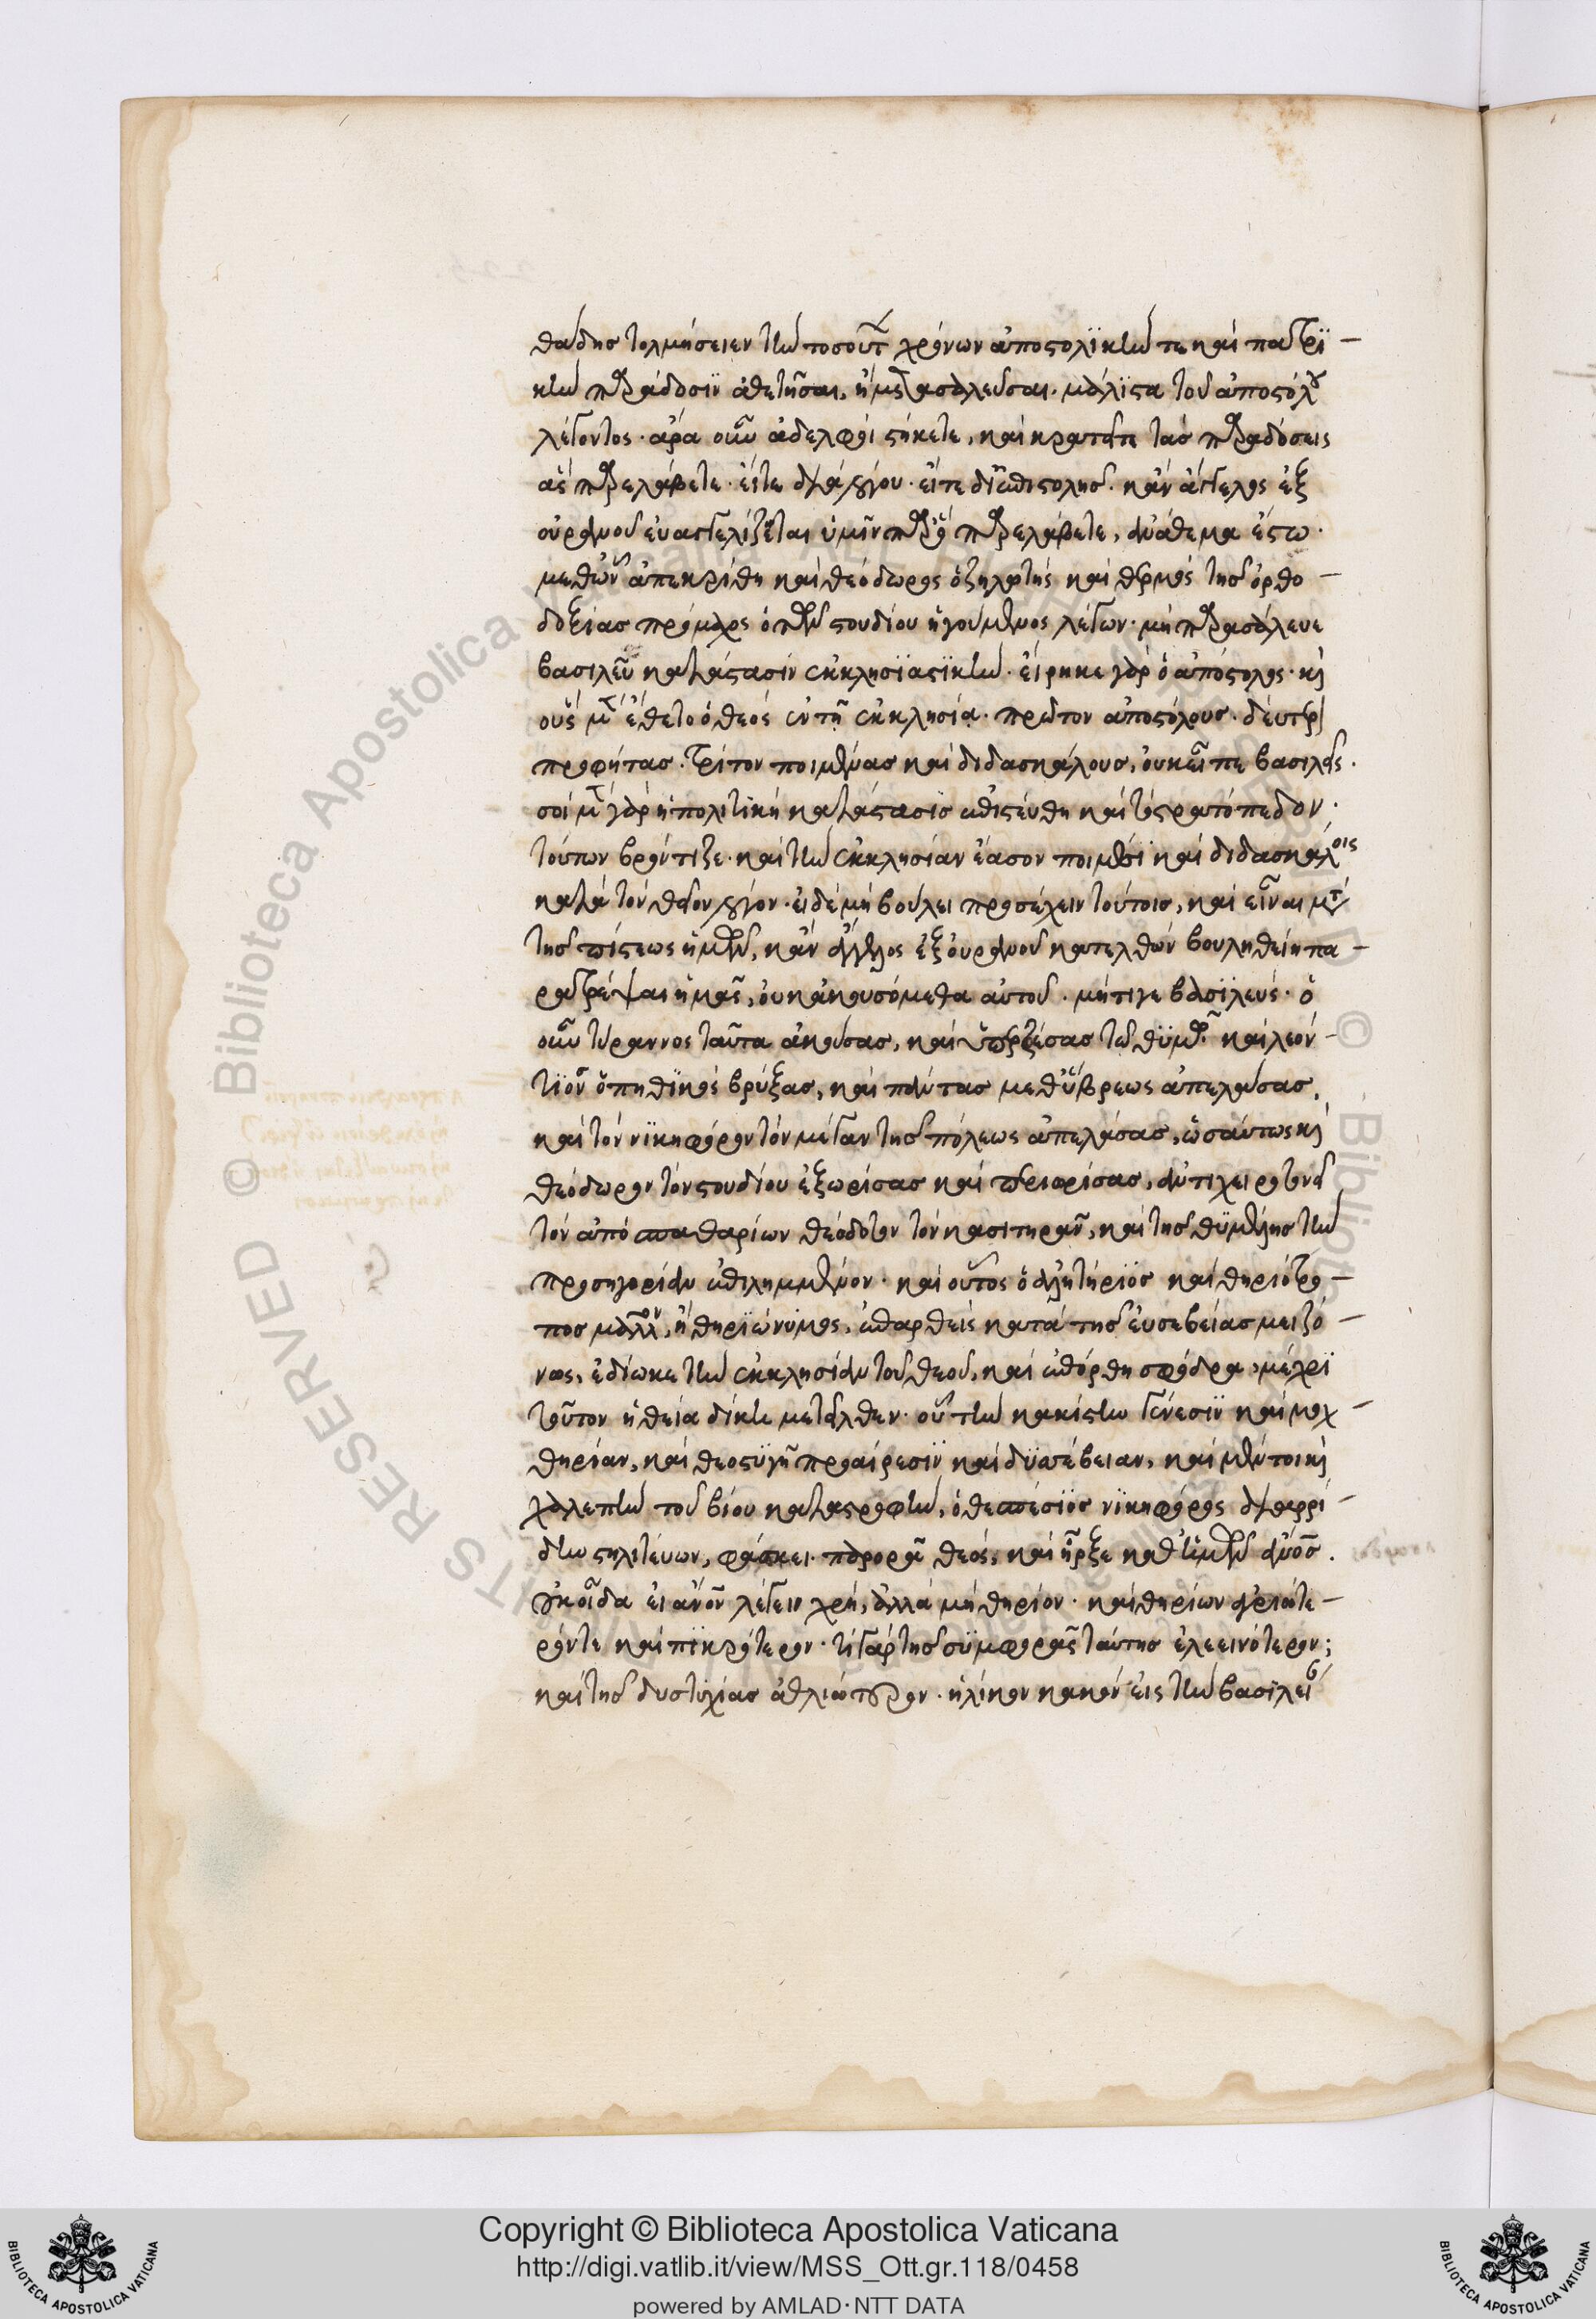 θάδης τολμήσειεν τὴν τοσούτ χρόνων ἀποστολϊκὴν τε καὶ πατρϊ
κὴν παράδοσϊν ἀθετῆσαι, ἢ μετασαλεῦσαι. μάλϊστα τοῦ ἀποστόλου
λέγοντος. ἄρα οὖν ἀδελφοὶ στήκετε, καὶ κρατεῖτε τὰς παραδόσεις
ἃς παρελάβετε. εἴτε διὰ λόγου. εἴτε δι' ἐπιστολῆς. κἂν ἄγγελος ἐξ
οὐρανοῦ εὐαγγελίζεται ὑμῖν παρ' ὃ παρελάβετε, ἀνάθεμα ἔστω.
μεθ' ὧν ἀπεκρίθη καὶ θεόδωρος ὁ ζηλωτὴς καὶ θερμὸς τῆς ὀρθο
δοξίας πρόμαχος ὁ τῶν στουδίου ἡγούμενος λέγων. μὴ παρασάλευε
βασιλεῦ κατάστασιν ἐκκλησϊαστϊκήν. εἴρηκε γὰρ ὁ ἀπόστολος. κὶ
οὓς μὲν ἔθετο ὁ θεὸς ἐν τῇ ἐκκλησίᾳ. πρῶτον ἀποστόλους. δεύτερ
προφήτας. τρίτον ποιμένας καὶ διδασκάλους, οὐκ εἶπε βασιλεῖς.
σοὶ μὲν γὰρ ἡ πολιτϊκὴ κατάστασϊς ἐπιστεύθη καὶ τὸ στρατόπεδον.
τούτων φρόντιζε. καὶ τὴν ἐκκλησίαν ἔασον ποιμέσϊ καὶ διδασκάλοις
κατὰ τὸν θεῖον λόγον. εἰ δὲ μὴ βούλει προσέχειν τούτοις, καὶ εἶναι μετὰ
τῆς πίστεως ἡμῶν, κἂν ἄγγελος ἐξ οὐρανοῦ κατελθὼν βουληθείη πα
ρατρέψαι ἡμᾶς, οὐκ ἀκουσόμεθα αὐτοῦ. μήτιγε βασϊλεύς. ὁ
οὖν τύραννος ταῦτα ἀκούσας, καὶ ὑπερζέσας τῷ θϋμῷ καὶ λεόν
τϊον ὀπηθϊκὸς βρύξας, καὶ πάντας μεθ' ὕβρεως ἀπελάσας,
καὶ τὸν νϊκηφόρον τὸν μέγαν τῆς πόλεως ἀπελάσας, ὡσαύτως κὶ
θεόδωρον τὸν στουδίου ἐξωρίσας καὶ περιορίσας, ἀντιχειροτονεῖ
τὸν ἀπὸ σπαθαρίων θεόδοτον τὸν κασιτηρᾶν, καὶ τῆς θϋμέλης τὴν
προσηγορίαν ἐπιλημμένον. καὶ οὗτος ὁ ἀλϊτήριος καὶ θηριότρο
πος μᾶλλον, ἢ θηρϊώνυμος, ἐπαρθεὶς κατὰ τῆς εὐσεβείας μειζό
νως, ἐδίωκε τὴν ἐκκλησίαν τοῦ θεοῦ, καὶ ἐπόρθη σφόδρα, μέχρϊ
τοῦτον ἡ θεία δίκη μετῆλθεν. οὗ τὴν κακίστην γένεσϊν καὶ μοχ
θηρίαν, καὶ θεοστϋγῆ προαίρεσϊν καὶ δϋσσέβειαν, καὶ μέντοι κὶ
χαλεπὴν τοῦ βίου καταστροφὴν, ὁ θεσπέσϊος νϊκηφόρος διαρρή
δην στηλιτεύων, φάσκει. παρορᾷ θεὸς, καὶ ἦρξε καθ' ἡμῶν ἀνος.
οὐκ οἶδα εἰ ἀνον λέγειν χρὴ, ἀλλὰ μὴ θηρίον. καὶ θηρίων ἀγριώτε
ρόν τε καὶ πϊκρότερον. τί γὰρ τῆς σϋμφορᾶς ταύτης ἐλεεινότερον;
καὶ τῆς δυστυχίας ἀθλιώτερον. ἡλίκον κακὸν εἰς τὴν βασϊλεί
Copyright © Biblioteca Apostolica Vaticana
http://digi.vatlib.it/view/MSS_Ott.gr.118/0458
powered by AMLAD·NTT DATA